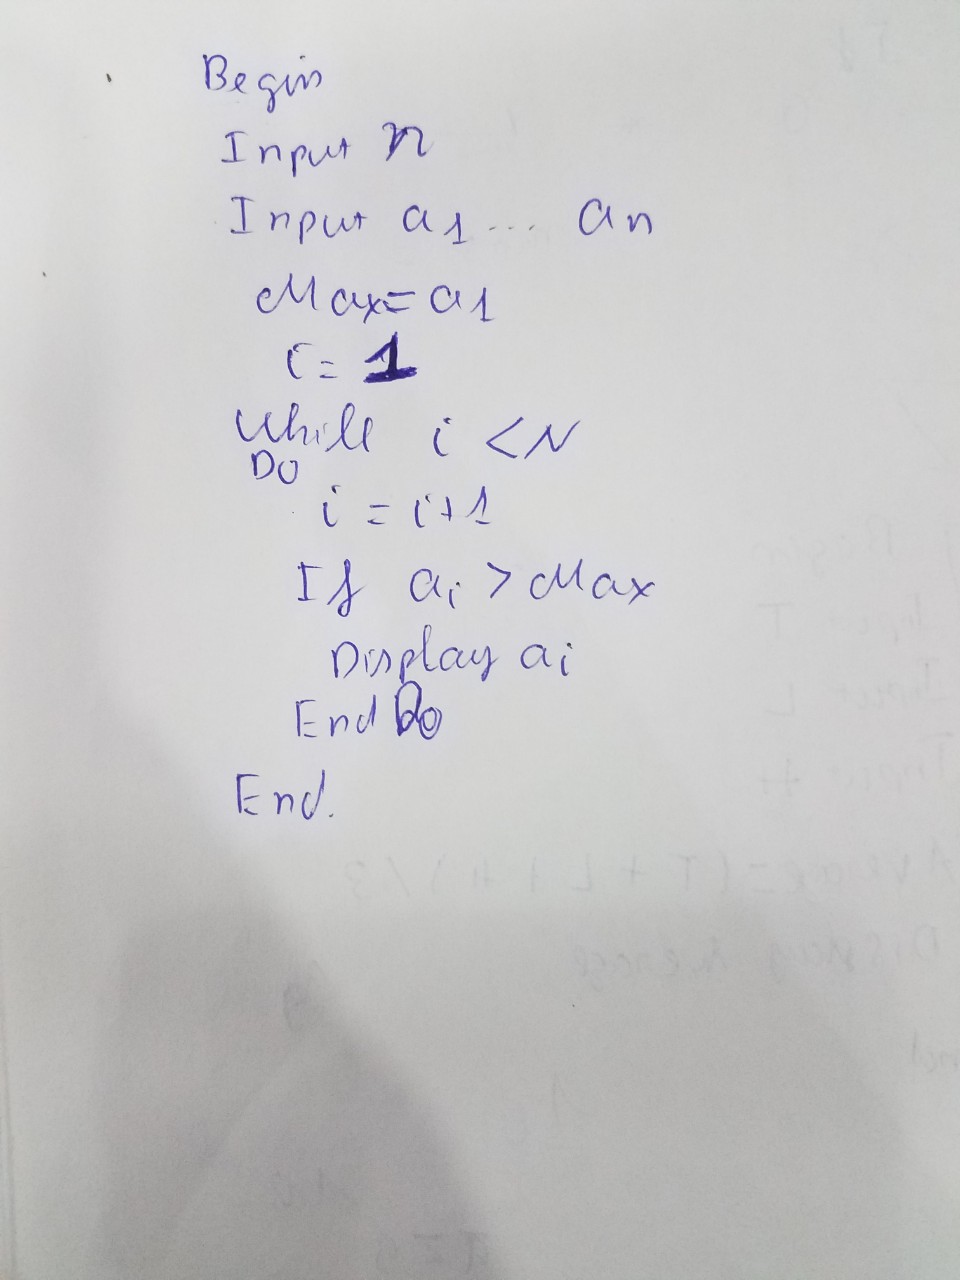 Begin
Input n
Input a1 ... an
Max = a1
i = 1
While i < N
Do
i = i+1
If ai > Max
Display ai
End Do
End.